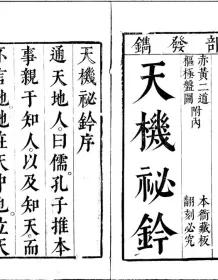 部發鐫
赤黃二道附內
樞極盤圖
本衙藏板
翻刻必究
天機祕鈐
天機祕鈐序
通天地人。曰儒。孔子推本
事親于知人。以及知天而
不言地。地在天中也。位天